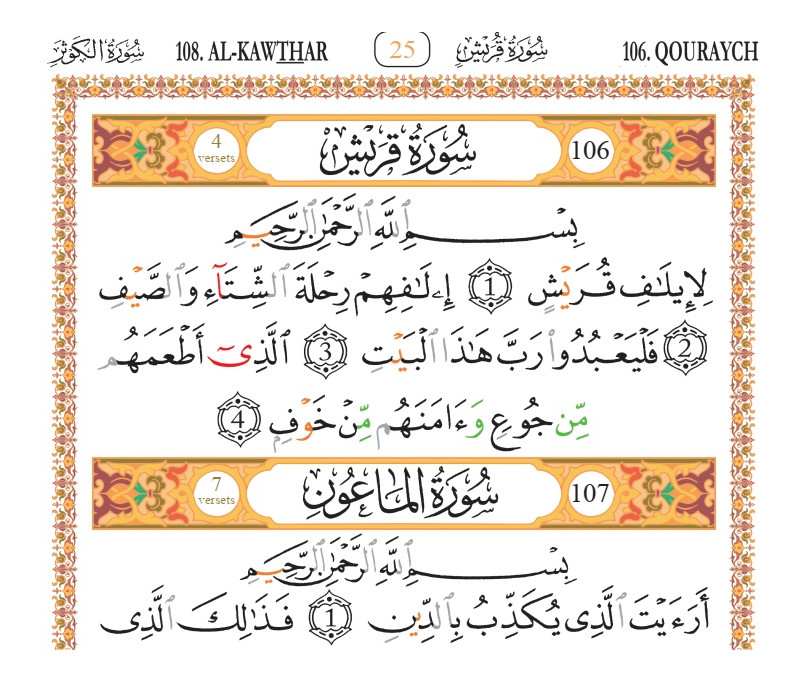 سُورَةُ الكَوْثَر 108. AL-KAWTHAR 25 سُورَةُ قُرَيْش 106. QOURAYCH
4 versets سُورَةُ قُرَيْش 106
بِسْمِ ٱللَّهِ ٱلرَّحْمَٰنِ ٱلرَّحِيمِ
لِإِيلَٰفِ قُرَيْشٍ 1 إِۦلَٰفِهِمْ رِحْلَةَ ٱلشِّتَآءِ وَٱلصَّيْفِ
2 فَلْيَعْبُدُوا۟ رَبَّ هَٰذَا ٱلْبَيْتِ 3 ٱلَّذِىٓ أَطْعَمَهُم
مِّن جُوعٍ وَءَامَنَهُم مِّنْ خَوْفٍۭ 4
7 versets سُورَةُ المَاعُونِ 107
بِسْمِ ٱللَّهِ ٱلرَّحْمَٰنِ ٱلرَّحِيمِ
أَرَءَيْتَ ٱلَّذِى يُكَذِّبُ بِٱلدِّينِ 1 فَذَٰلِكَ ٱلَّذِى